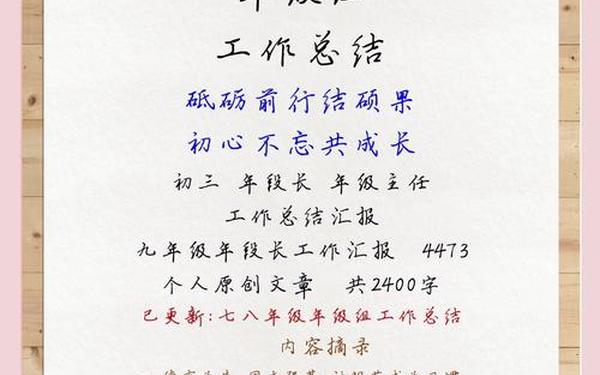 年级组
工作总结
砥砺前行结硕果
初心不忘共成长
初三 年段长 年级主任
工作总结汇报
九年级年段长工作汇报 4473
个人原创文章 共2400字
已更新:七八年级年级组工作总结
内容摘录